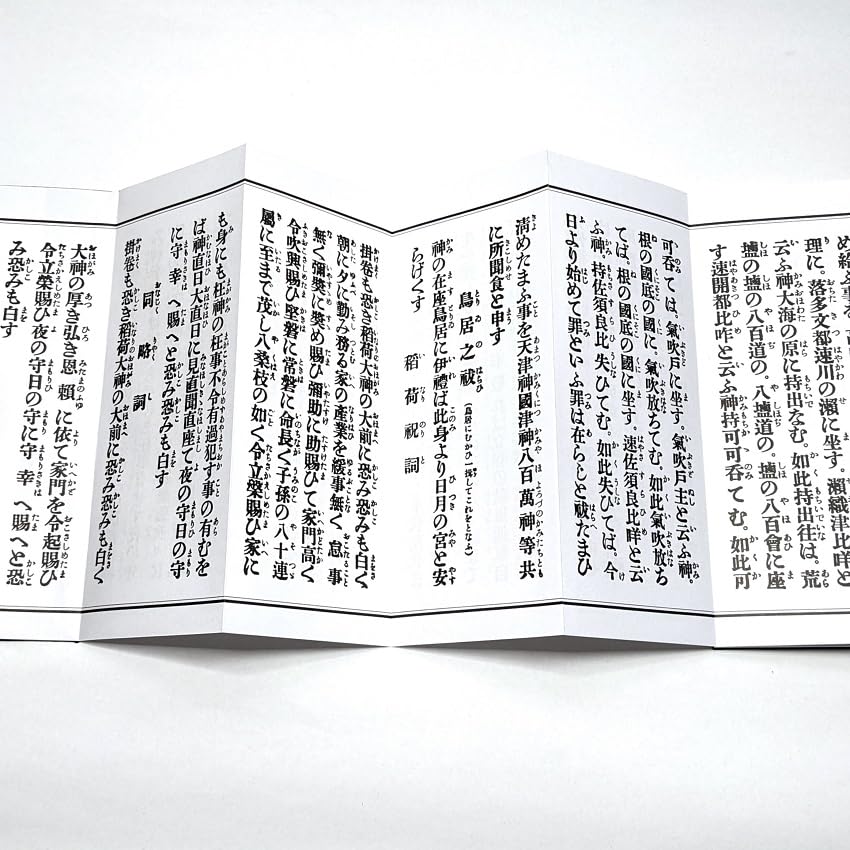 め給ふ事を
理に。落多文都速川の瀨に坐す。瀨織津比咩と
云ふ神大海の原に持出なむ。如此持出往は。荒
鹽の鹽の八百道の。八鹽道の。鹽の八百會に座
す速開都比咩と云ふ神持可可呑てむ。如此可
可呑ては。氣吹戸に坐す。氣吹戸主と云ふ神。
根の國底の國に。氣吹放ちてむ。如此氣吹放ち
てば。根の國底の國に坐す 速佐須良比咩と云
ふ神。持佐須良比失ひてむ。如此失ひてば。今
日より始めて罪といふ罪は在らじと祓たまひ
淸めたまふ事を天津神國津神八百萬神等共
に所聞食と申す
鳥居之祓 (鳥居にむかひ一揖してこれをとなふ)
神の在座鳥居に伊禮ば此身より日月の宮と安
らげくす
稻荷祝詞
掛卷も恐き稻荷大神の大前に恐み恐みも白く
朝に夕に勤み務る家の產業を緩事無く怠事
無く彌奬に奬め賜ひ彌助に助賜ひて家門高く
令吹興賜ひ堅磐に常磐に命長く子孫の八十連
屬に至まで茂し八桑枝の如く令立榮賜ひ家に
も身にも枉神の枉事不令有過犯す事の有むを
ば神直日大直日に見直聞直座て夜の守日の守
に守幸へ賜へと恐み恐みも白す
同略詞
掛卷も恐き稻荷大神の大前に恐み恐みも白く
大神の厚き弘き恩賴に依て家門を令起賜ひ
令立榮賜ひ夜の守日の守に守幸へ賜へと恐
み恐みも白す